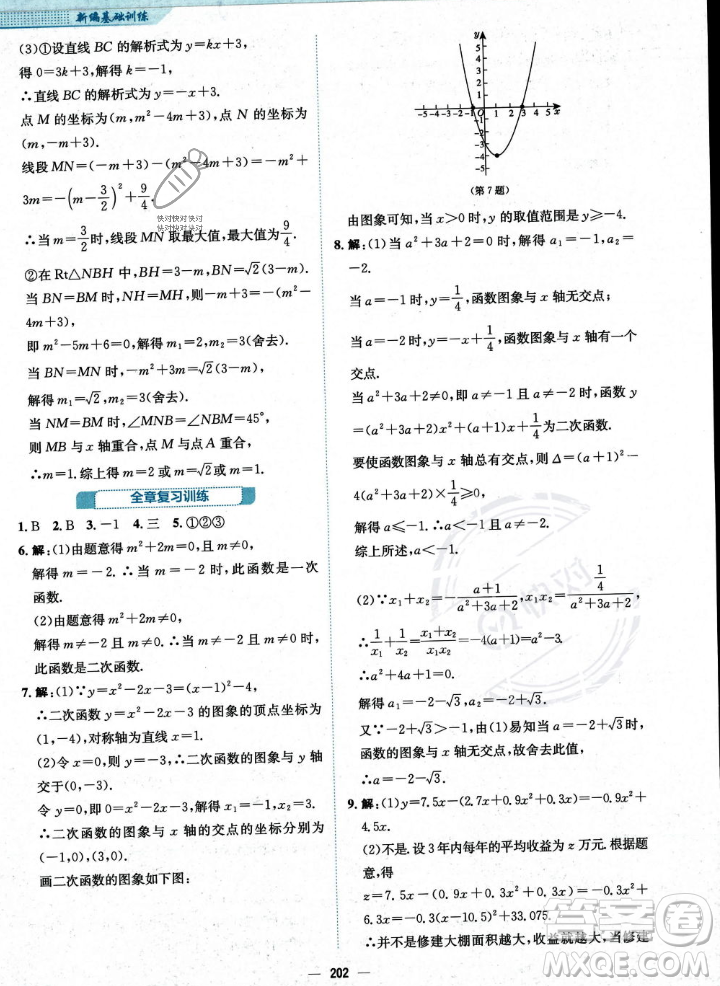 新编基础训练
(3)①设直线 BC 的解析式为 y=kx+3,
得 0=3k+3,解得 k=-1,
∴直线 BC 的解析式为 y=-x+3,
点 M 的坐标为(m,m²-4m+3),点 N 的坐标为
(m,-m+3),
线段 MN=(-m+3)-(m²-4m+3)=-m²+
3m=-(m-3/2)²+9/4.
快对快对快对
快对快对快对
∴当 m=3/2时,线段 MN 取最大值,最大值为9/4.
②在 Rt△NBH 中,BH=3-m,BN=√2(3-m).
当 BN=BM 时,NH=MH,则 3-m=-(m²-
4m+3),
即 m²-5m+6=0,解得 m₁=2,m₂=3(舍去).
当 BN=MN 时,-m²+3m=√2(3-m),
解得 m₁=√2,m₂=3(舍去).
当 NM=BM 时,∠MNB=∠NBM=45°,
则 MB 与 x 轴重合,点 M 与点 A 重合,
∴m=1.综上得 m=2或 m=√2或 m=1.
全章复习训练
1.B 2.B 3.-1 4.三 5.①②③
6.解:(1)由题意得 m²+2m=0,且 m≠0,
解得 m=-2.∴当 m=-2 时,此函数是一次
函数.
(2)由题意得 m²+2m≠0,
解得 m≠-2且 m≠0.∴当 m≠-2且 m≠0时,
此函数是二次函数.
7.解:(1)∵y=x²-2x-3=(x-1)²-4,
∴二次函数 y=x²-2x-3的图象的顶点坐标为
(1,-4),对称轴为直线 x=1.
(2)令 x=0,则 y=-3,∴二次函数图象与 y 轴
交于(0,-3).
令 y=0,则 x²-2x-3=0,解得 x₁=-1,x₂=3.
∴二次函数的图象与 x 轴的交点的坐标分别为
(-1,0),(3,0).
画二次函数的图象如下图:
y
5
4
3
2
1
-5-4-3-2-1 O 1 2 3 4 5 x
-1
-2
-3
-4
-5
(第7题)
由图象可知,当 x>0时,y 的取值范围是 y≥-4.
8.解:(1)当 a²+3a+2=0时,解得 a₁=-1,a₂=
-2.
当 a=-1时,y=1/4,函数图象与 x 轴无交点;
当 a=-2时,y=-x+1/4,函数图象与 x 轴有一个
交点.
当 a²+3a+2≠0,即 a≠-1且 a≠-2时,
y=(a²+3a+2)x²+(a+1)x+1/4为二次函数.
要使函数图象与 x 轴总有交点,则 Δ=(a+1)²-
4(a²+3a+2)×1/4≥0,
解得 a≤-1.∴a<-1且 a≠-2.
综上所述,a<-1.
(2)∵x₁+x₂=-(a+1)/(a²+3a+2),x₁x₂=(1/4)/(a²+3a+2),
∴1/x₁+1/x₂=(x₁+x₂)/(x₁x₂)=-4(a+1)=a²-3.
∴a²+4a+1=0,
解得 a₁=-2-√3,a₂=-2+√3.
又∵-2+√3>-1,由(1)易知,当 a>-1时,
函数的图象与 x 轴无交点,故舍去此值,
∴a=-2-√3.
9.解:(1)y=7.5x-(2.7x+0.9x²+0.3x)=-0.9x²+
4.5x.
(2)不是.设 3 年内每年的平均收益为 z 万元.根据题
意,得
z=7.5x-(0.9x+0.3x²+0.3x)=-0.3x²+
6.3x=-0.3(x-10.5)²+33.075.
∴并不是修建大棚面积越大,收益就越大,当修建
快对
答案卷
MXQE.COM
202